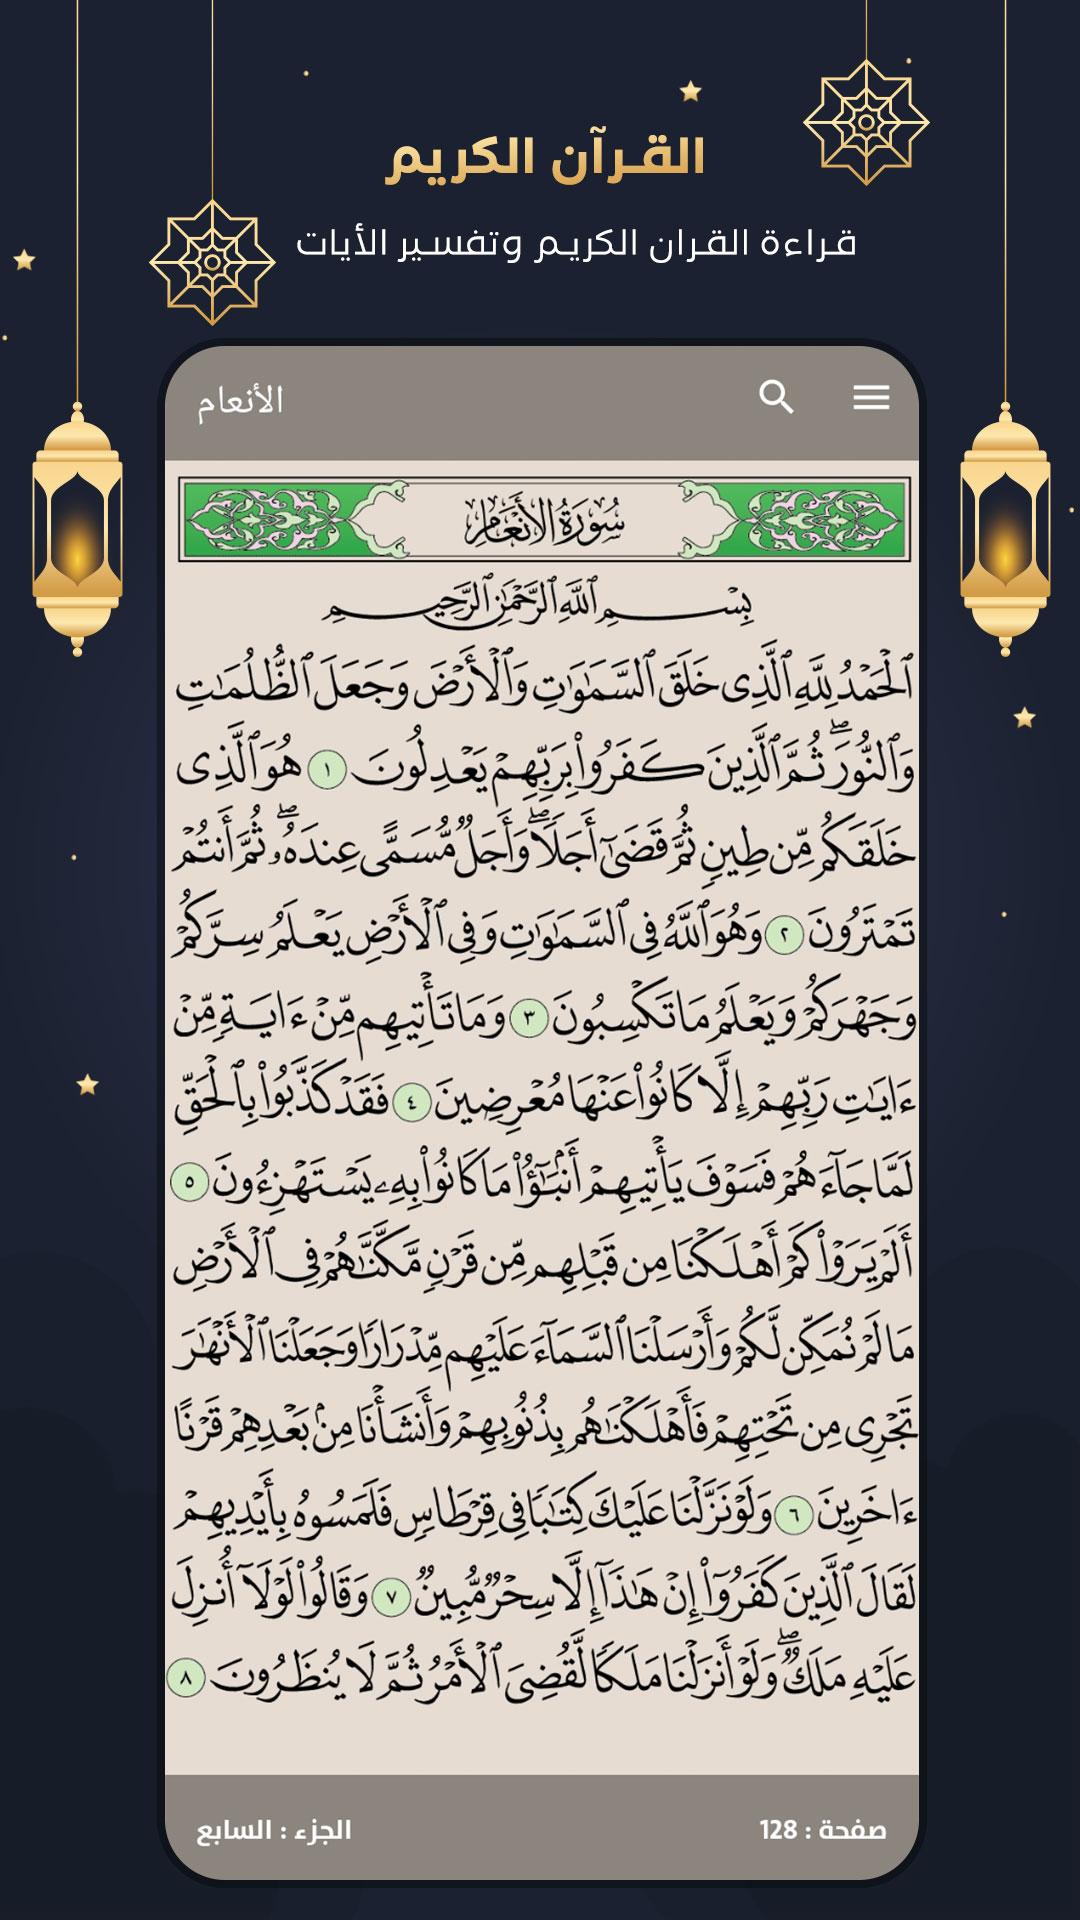 القـرآن الكريم
قراءة القران الكريم وتفسير الأيات
الأنعام
سُورَةُ الأَنعَامِ
بِسْمِ ٱللَّهِ ٱلرَّحْمَٰنِ ٱلرَّحِيمِ
ٱلْحَمْدُ لِلَّهِ ٱلَّذِى خَلَقَ ٱلسَّمَٰوَٰتِ وَٱلْأَرْضَ وَجَعَلَ ٱلظُّلُمَٰتِ
وَٱلنُّورَ ۖ ثُمَّ ٱلَّذِينَ كَفَرُوا۟ بِرَبِّهِمْ يَعْدِلُونَ ١ هُوَ ٱلَّذِى
خَلَقَكُم مِّن طِينٍ ثُمَّ قَضَىٰٓ أَجَلًا ۖ وَأَجَلٌ مُّسَمًّى عِندَهُۥ ۖ ثُمَّ أَنتُمْ
تَمْتَرُونَ ٢ وَهُوَ ٱللَّهُ فِى ٱلسَّمَٰوَٰتِ وَفِى ٱلْأَرْضِ يَعْلَمُ سِرَّكُمْ
وَجَهْرَكُمْ وَيَعْلَمُ مَا تَكْسِبُونَ ٣ وَمَا تَأْتِيهِم مِّنْ ءَايَةٍ مِّنْ
ءَايَٰتِ رَبِّهِمْ إِلَّا كَانُوا۟ عَنْهَا مُعْرِضِينَ ٤ فَقَدْ كَذَّبُوا۟ بِٱلْحَقِّ
لَمَّا جَآءَهُمْ فَسَوْفَ يَأْتِيهِمْ أَنۢبَٰٓؤُا۟ مَا كَانُوا۟ بِهِۦ يَسْتَهْزِءُونَ ٥
أَلَمْ يَرَوْا۟ كَمْ أَهْلَكْنَا مِن قَبْلِهِم مِّن قَرْنٍ مَّكَّنَّٰهُمْ فِى ٱلْأَرْضِ
مَا لَمْ نُمَكِّن لَّكُمْ وَأَرْسَلْنَا ٱلسَّمَآءَ عَلَيْهِم مِّدْرَارًا وَجَعَلْنَا ٱلْأَنْهَٰرَ
تَجْرِى مِن تَحْتِهِمْ فَأَهْلَكْنَٰهُم بِذُنُوبِهِمْ وَأَنشَأْنَا مِنۢ بَعْدِهِمْ قَرْنًا
ءَاخَرِينَ ٦ وَلَوْ نَزَّلْنَا عَلَيْكَ كِتَٰبًا فِى قِرْطَاسٍ فَلَمَسُوهُ بِأَيْدِيهِمْ
لَقَالَ ٱلَّذِينَ كَفَرُوٓا۟ إِنْ هَٰذَآ إِلَّا سِحْرٌ مُّبِينٌ ٧ وَقَالُوا۟ لَوْلَآ أُنزِلَ
عَلَيْهِ مَلَكٌ ۖ وَلَوْ أَنزَلْنَا مَلَكًا لَّقُضِىَ ٱلْأَمْرُ ثُمَّ لَا يُنظَرُونَ ٨
صفحة : 128
الجزء : السابع